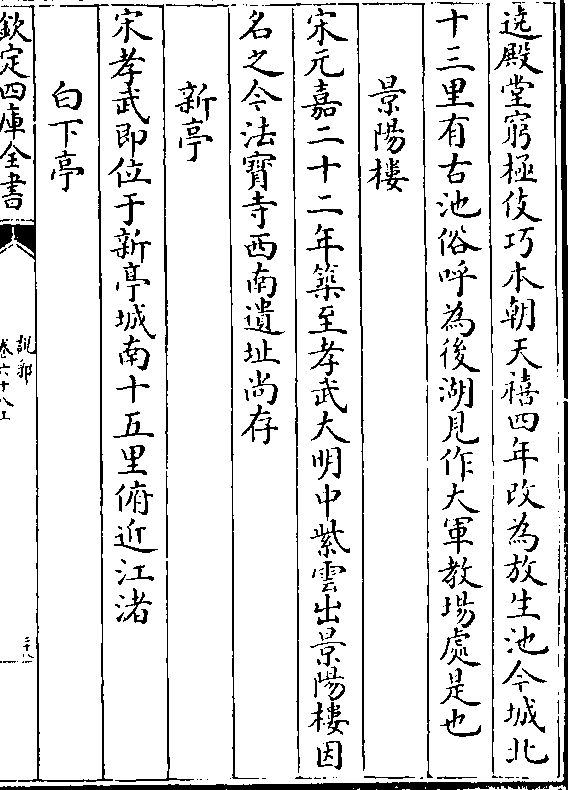 造殿堂窮極伎巧本朝天禧四年改為放生池今城北
十三里有古池俗呼為後湖見作大軍教場處是也
景陽樓
宋元嘉二十二年築至孝武大明中紫雲出景陽樓因
名之今法寶寺西南遺址尚存
新亭
宋孝武即位于新亭城南十五里俯近江渚
白下亭
欽定四庫全書
說郛
卷六十八上
二十八